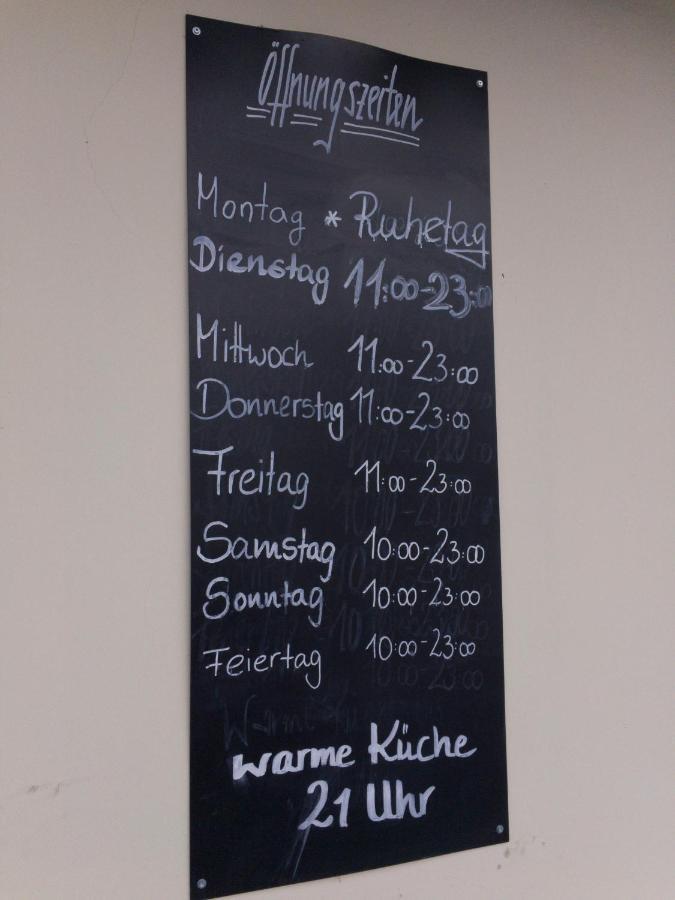 Öffnungszeiten
Montag * Ruhetag
Dienstag 11:00-23:00
Mittwoch 11:00-23:00
Donnerstag 11:00-23:00
Freitag 11:00-23:00
Samstag 10:00-23:00
Sonntag 10:00-23:00
Feiertag 10:00-23:00
warme Küche
21 Uhr